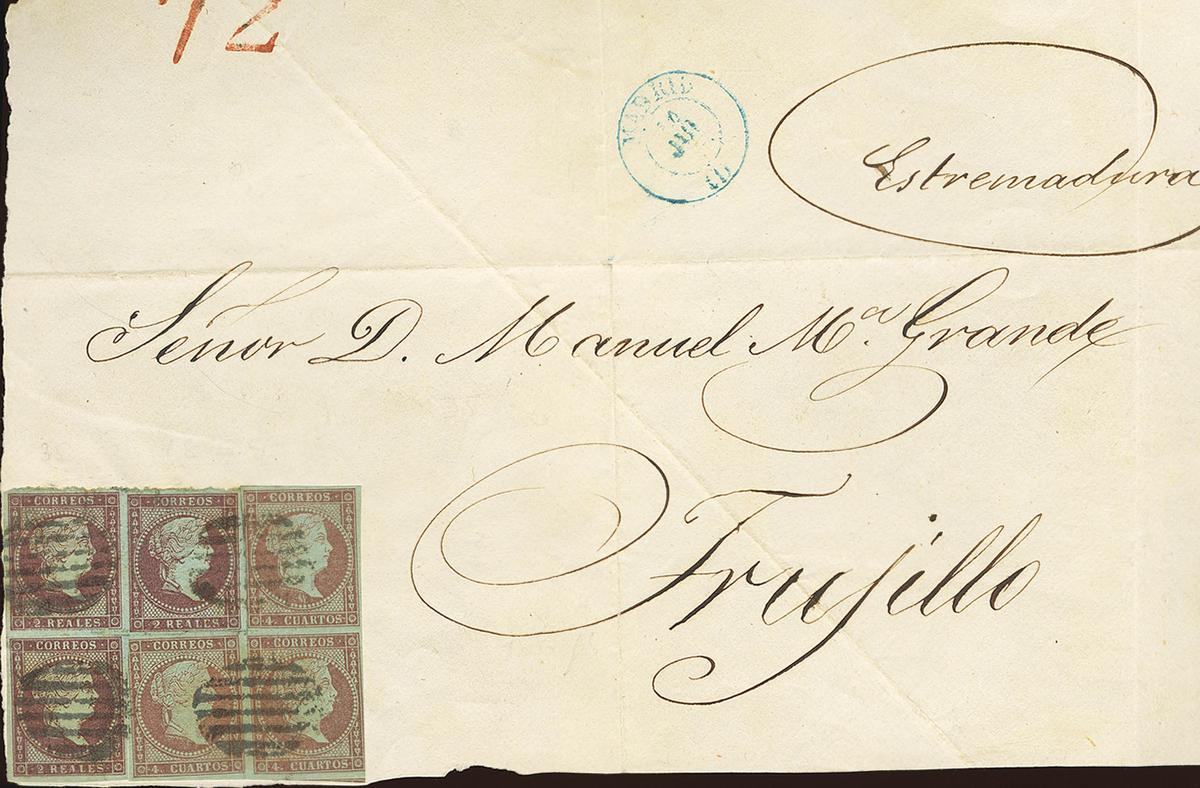 72
MADRID
10
JUN
(1)
Estremadura
Señor D. Manuel Mª. Grande
Trujillo
CORREOS CORREOS CORREOS
2 REALES 2 REALES 4 CUARTOS
CORREOS CORREOS CORREOS
2 REALES 4 CUARTOS 4 CUARTOS